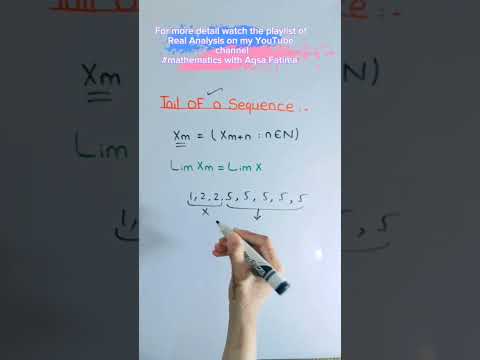 For more detail watch the playlist of
Real Analysis on my YouTube
channel
#mathematics with Aqsa Fatima
Tail OF a Sequence :-
Xm = ( Xm+n : n∈N)
Lim Xm = Lim X
1, 2, 2, 5, 5, 5, 5, 5
x ↓